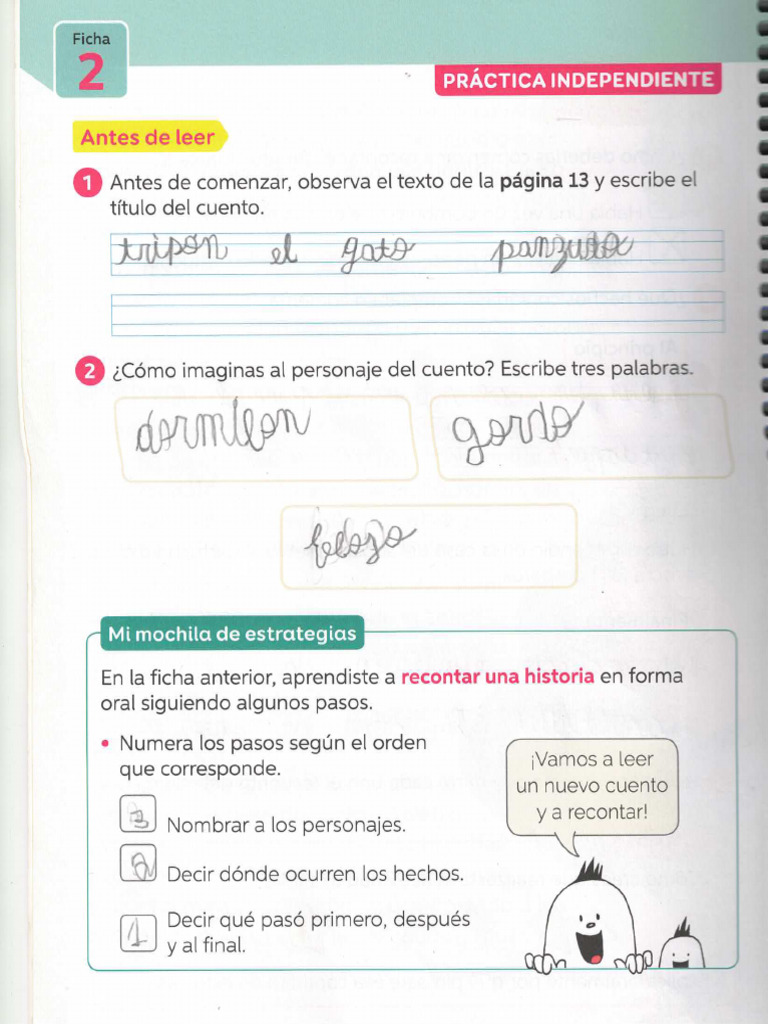 Ficha
2
PRÁCTICA INDEPENDIENTE
Antes de leer
1 Antes de comenzar, observa el texto de la página 13 y escribe el
título del cuento.
tripon el gato panzudo
2 ¿Cómo imaginas al personaje del cuento? Escribe tres palabras.
dormilon gordo
Mi mochila de estrategias
En la ficha anterior, aprendiste a recontar una historia en forma
oral siguiendo algunos pasos.
• Numera los pasos según el orden
que corresponde.
¡Vamos a leer
un nuevo cuento
y a recontar!
3 Nombrar a los personajes.
2 Decir dónde ocurren los hechos.
1 Decir qué pasó primero, después
y al final.